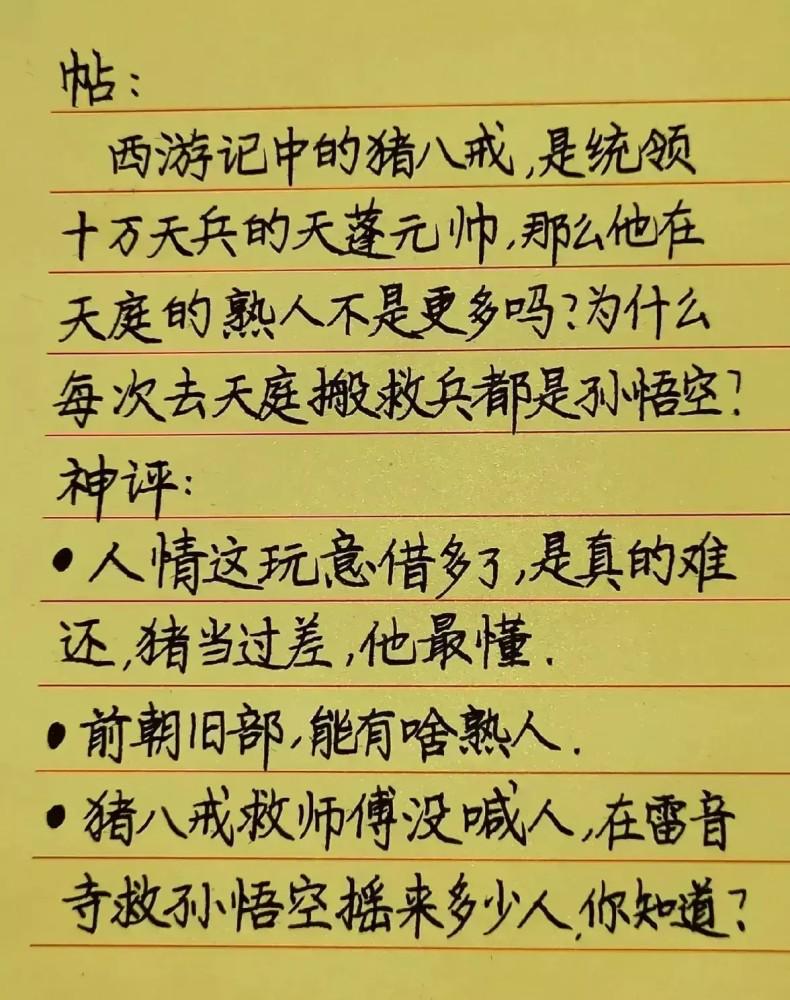 帖：
西游记中的猪八戒，是统领
十万天兵的天蓬元帅，那么他在
天庭的熟人不是更多吗？为什么
每次去天庭搬救兵都是孙悟空？
神评：
•人情这玩意借多了，是真的难
还，猪当过差，他最懂．
•前朝旧部，能有啥熟人．
•猪八戒救师傅没喊人，在雷音
寺救孙悟空摇来多少人，你知道？